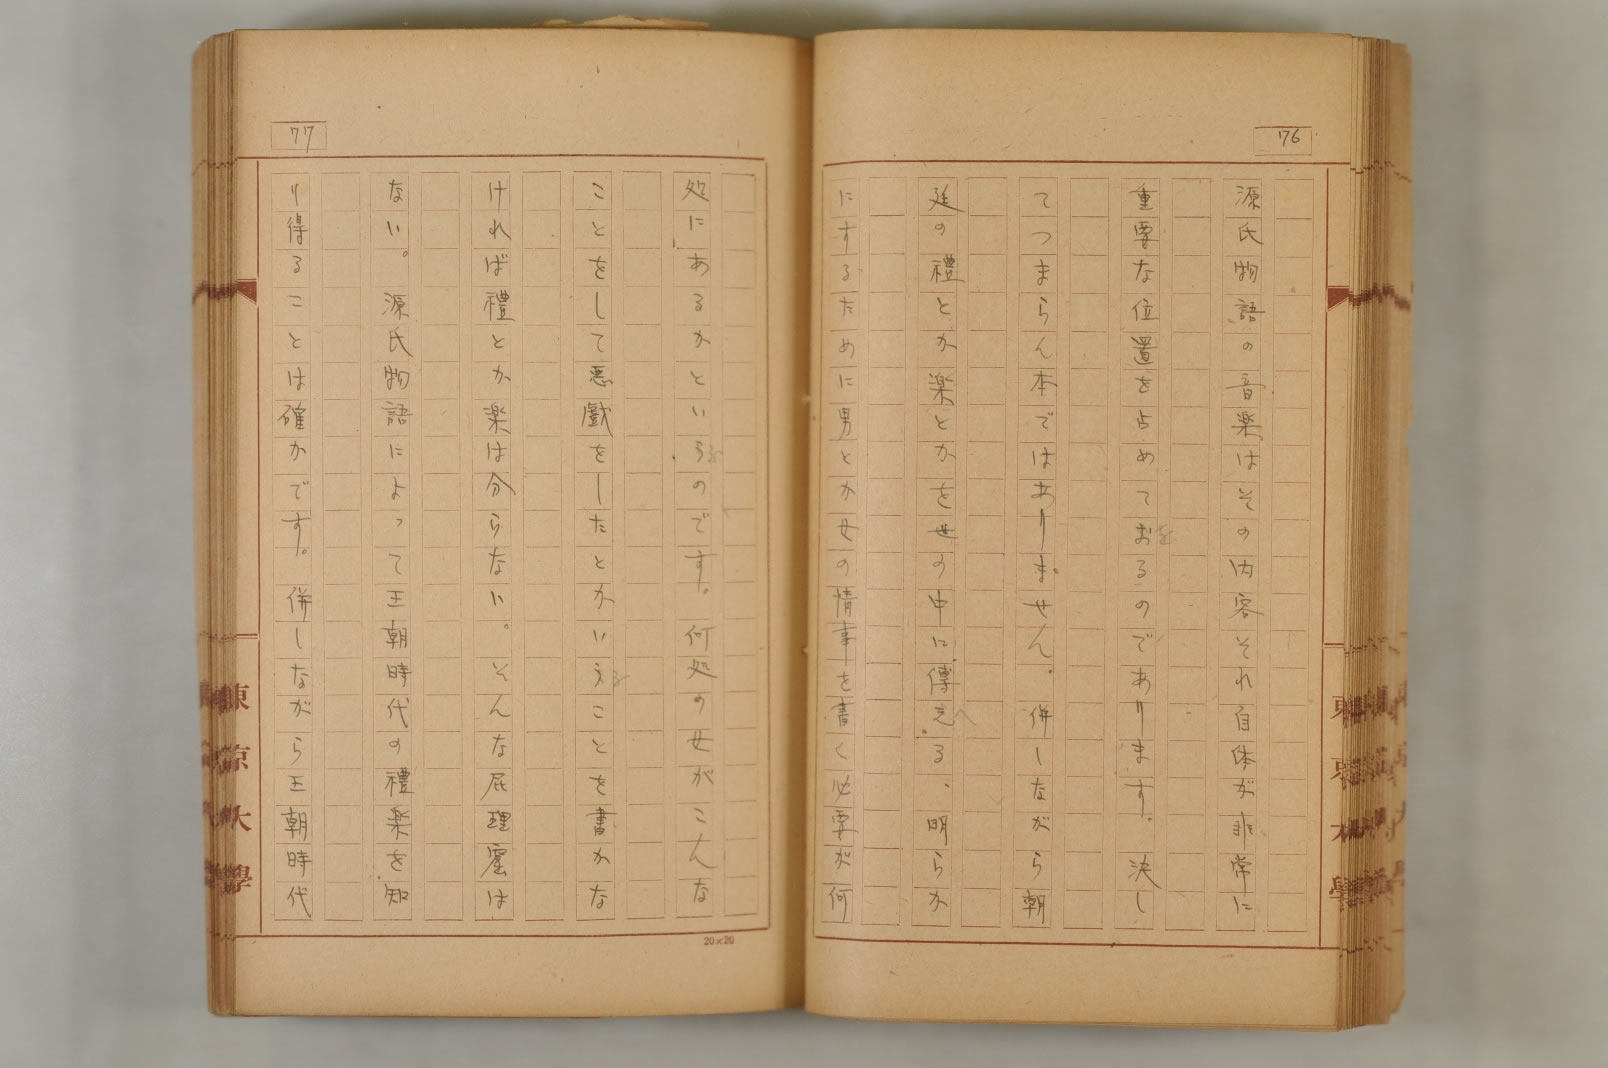 76
源氏物語の音楽はその内容それ自体が非常に
重要な位置を占めておるのであります。決し
てつまらん本ではありません。併しながら朝
廷の禮とか楽とかを世の中に傳える、明らか
にするために男とか女の情事を書く必要が何
77
処にあるかといらのです。何処の女がこんな
ことをして悪戯をしたとかいうことを書かな
ければ禮とか楽は分らない。そんな屁理窟は
ない。源氏物語によって王朝時代の禮楽を知
り得ることは確かです。併しながら王朝時代
20×20
東京大學